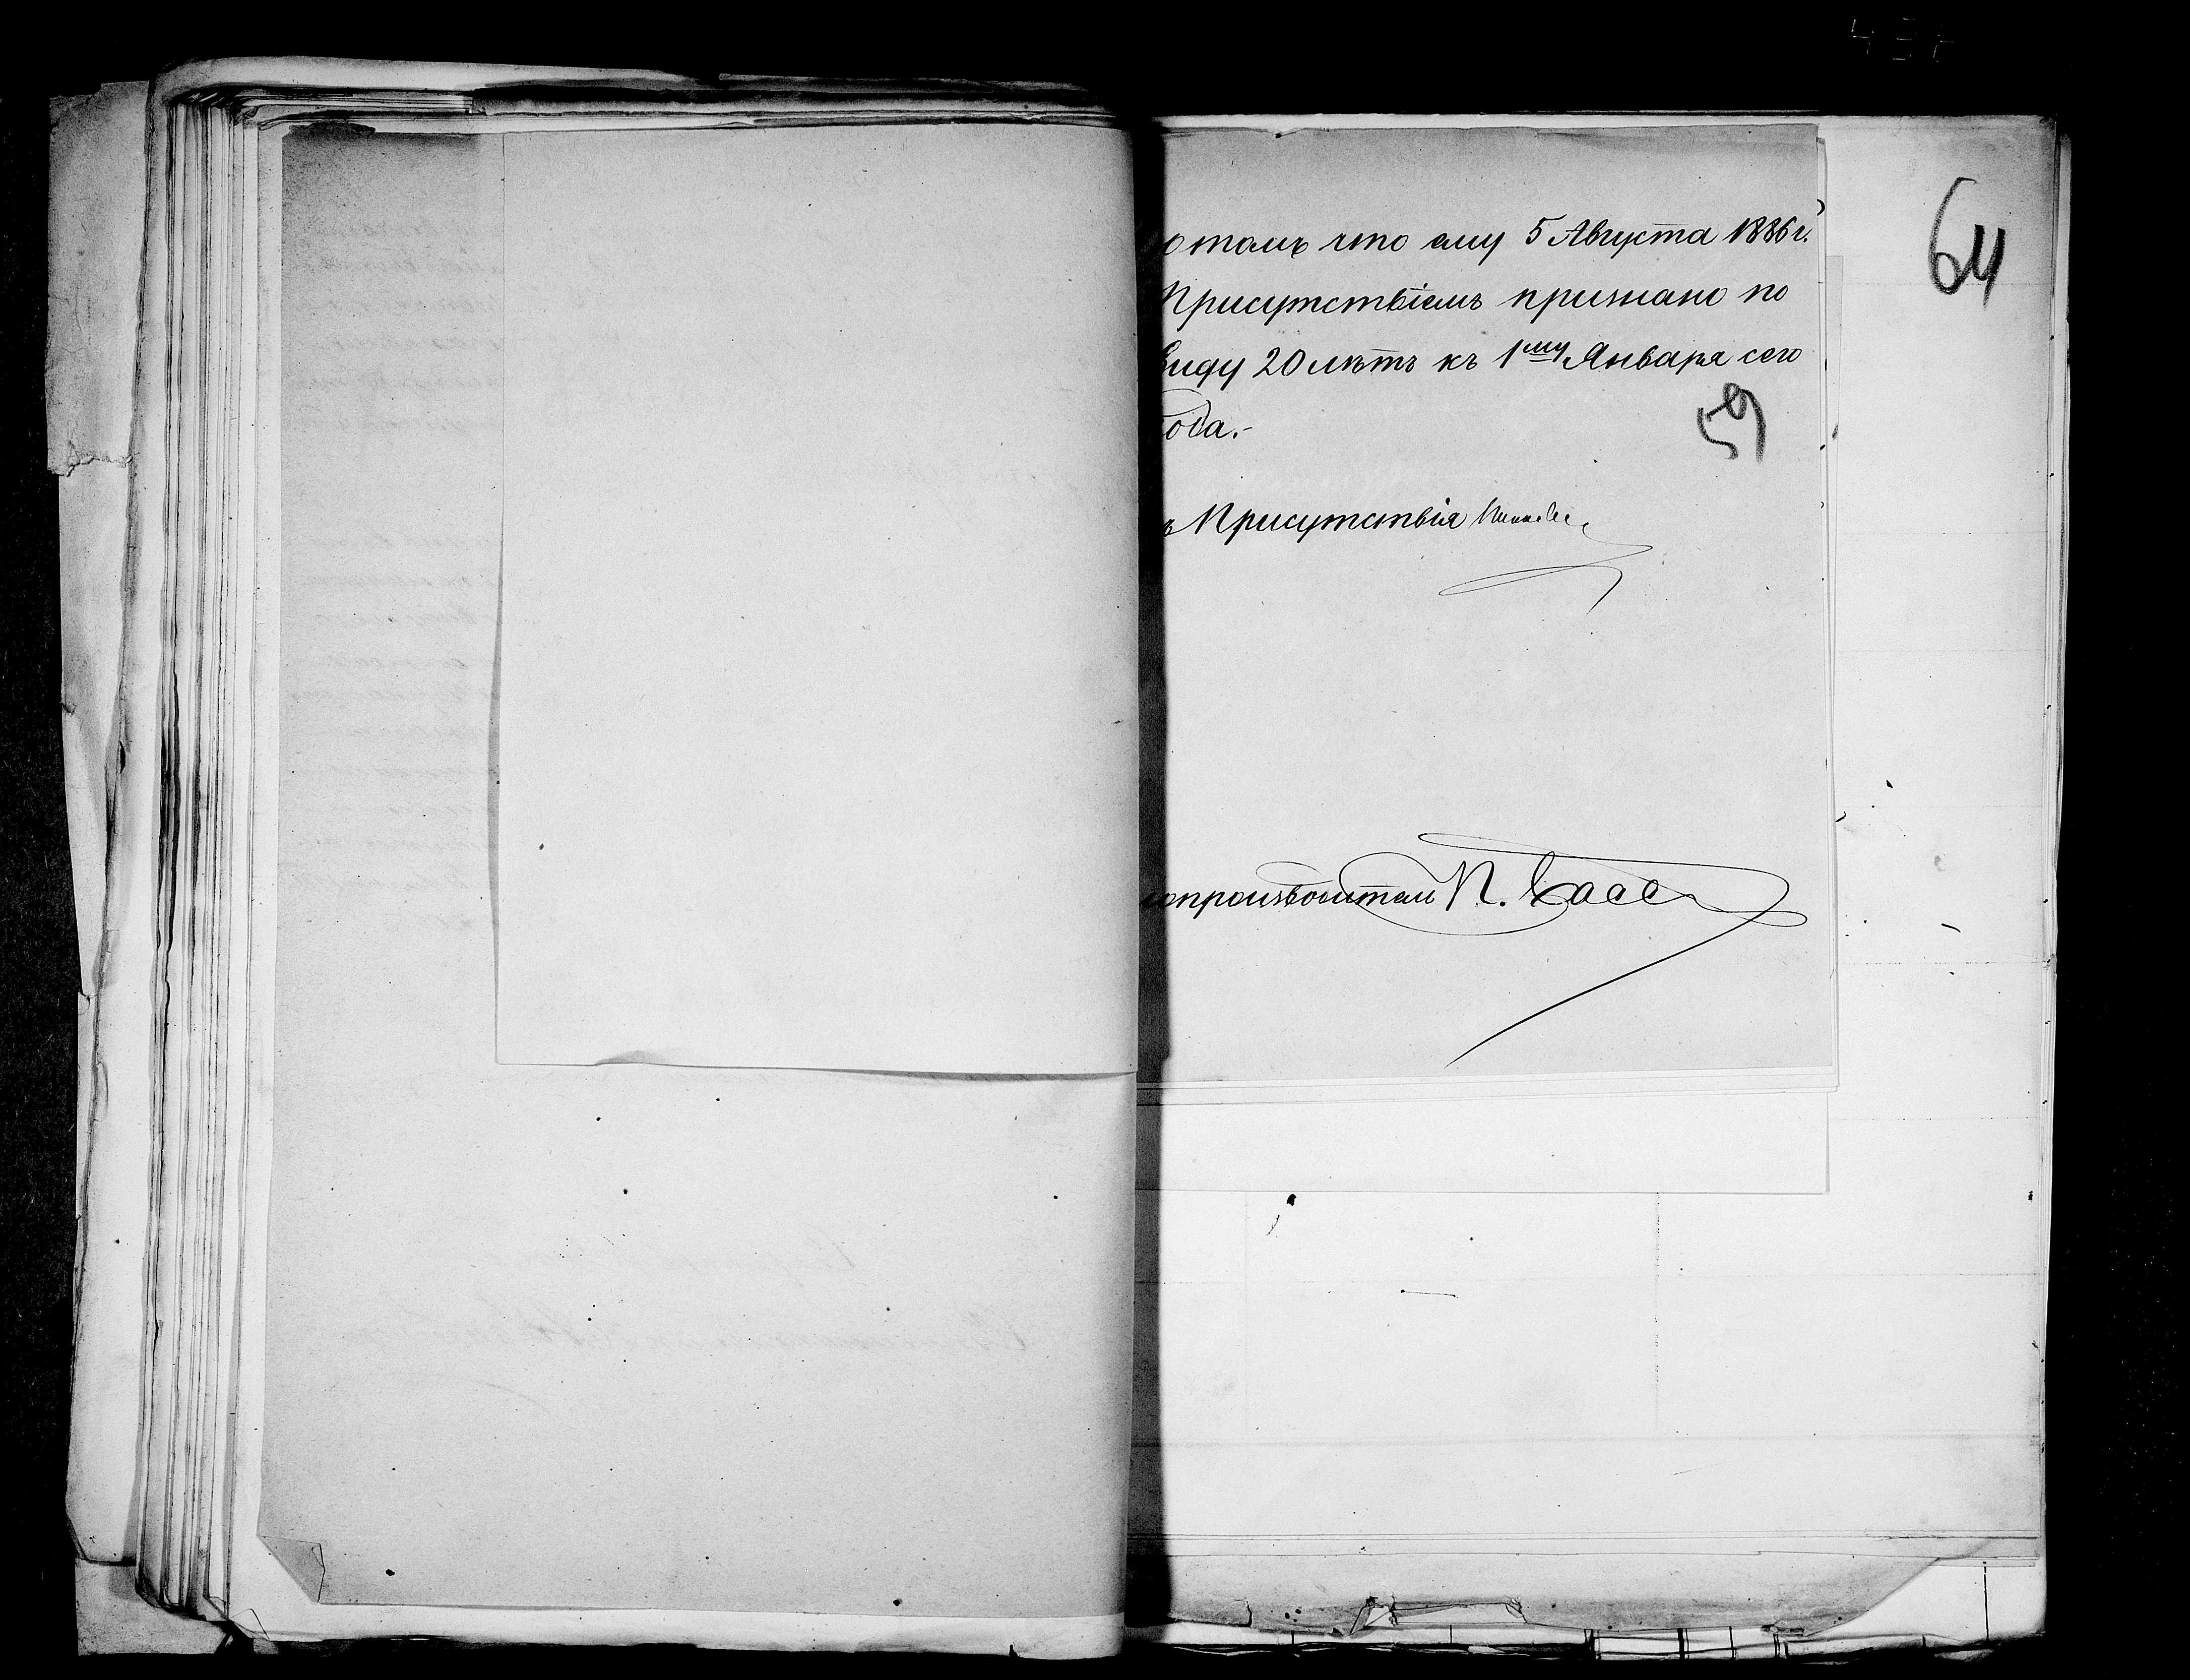 64
о томъ что ему 5 Августа 1886 г.
Присутствіемъ признано по
виду 20 лѣтъ къ 1му Января сего
года.-
59
ъ Присутствія
опроизводитель П.